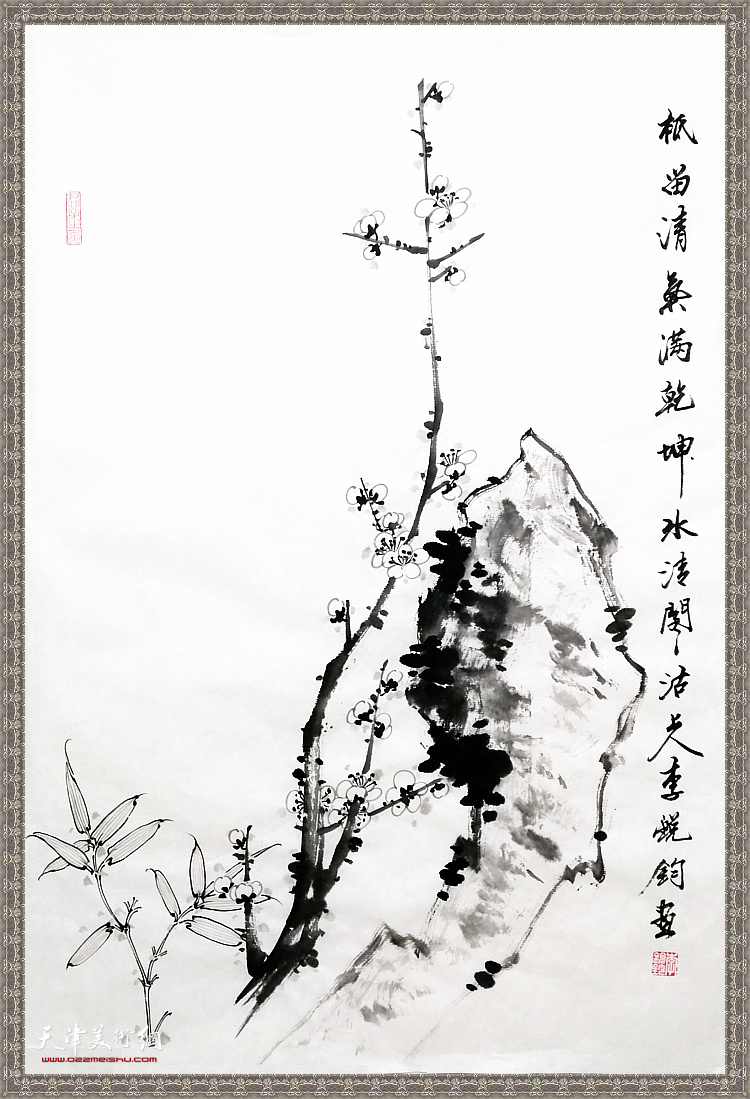 祇留清氣滿乾坤水清閣沽上人李銳鈞畫
天津美術網
www.022meishu.com